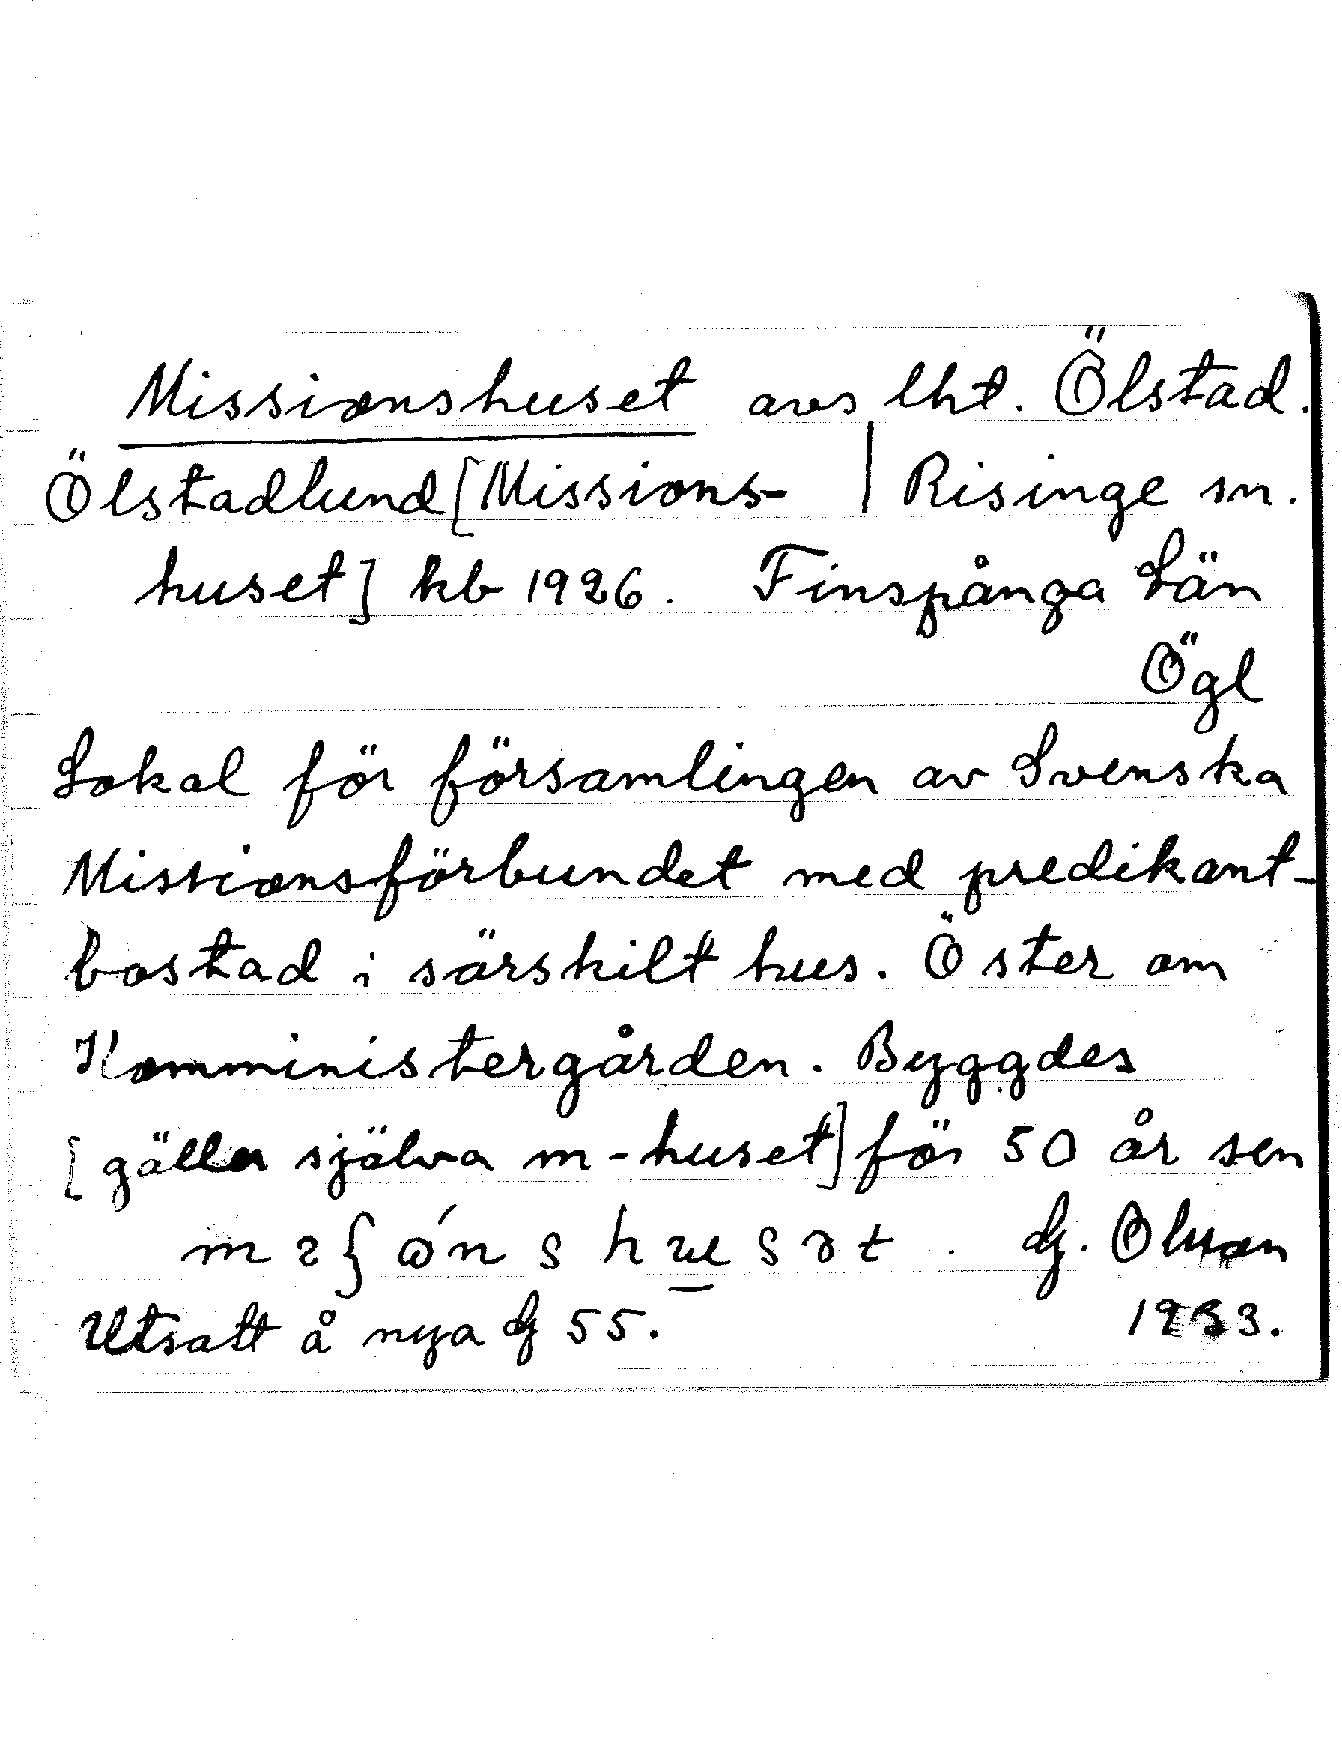 Missionshuset avs lht. Ölstad.
Ölstadlund [Missions- | Risinge sn.
huset] kb 1926. Finspånga Län
Ögl
Lokal för församlingen av Svenska
Missionsförbundet med predikant-
bostad i särskilt hus. Öster om
Komministergården. Byggdes
[gäller själva m-huset] för 50 år sen
. G. Olsson
Utsatt å nya G 55. 1933.